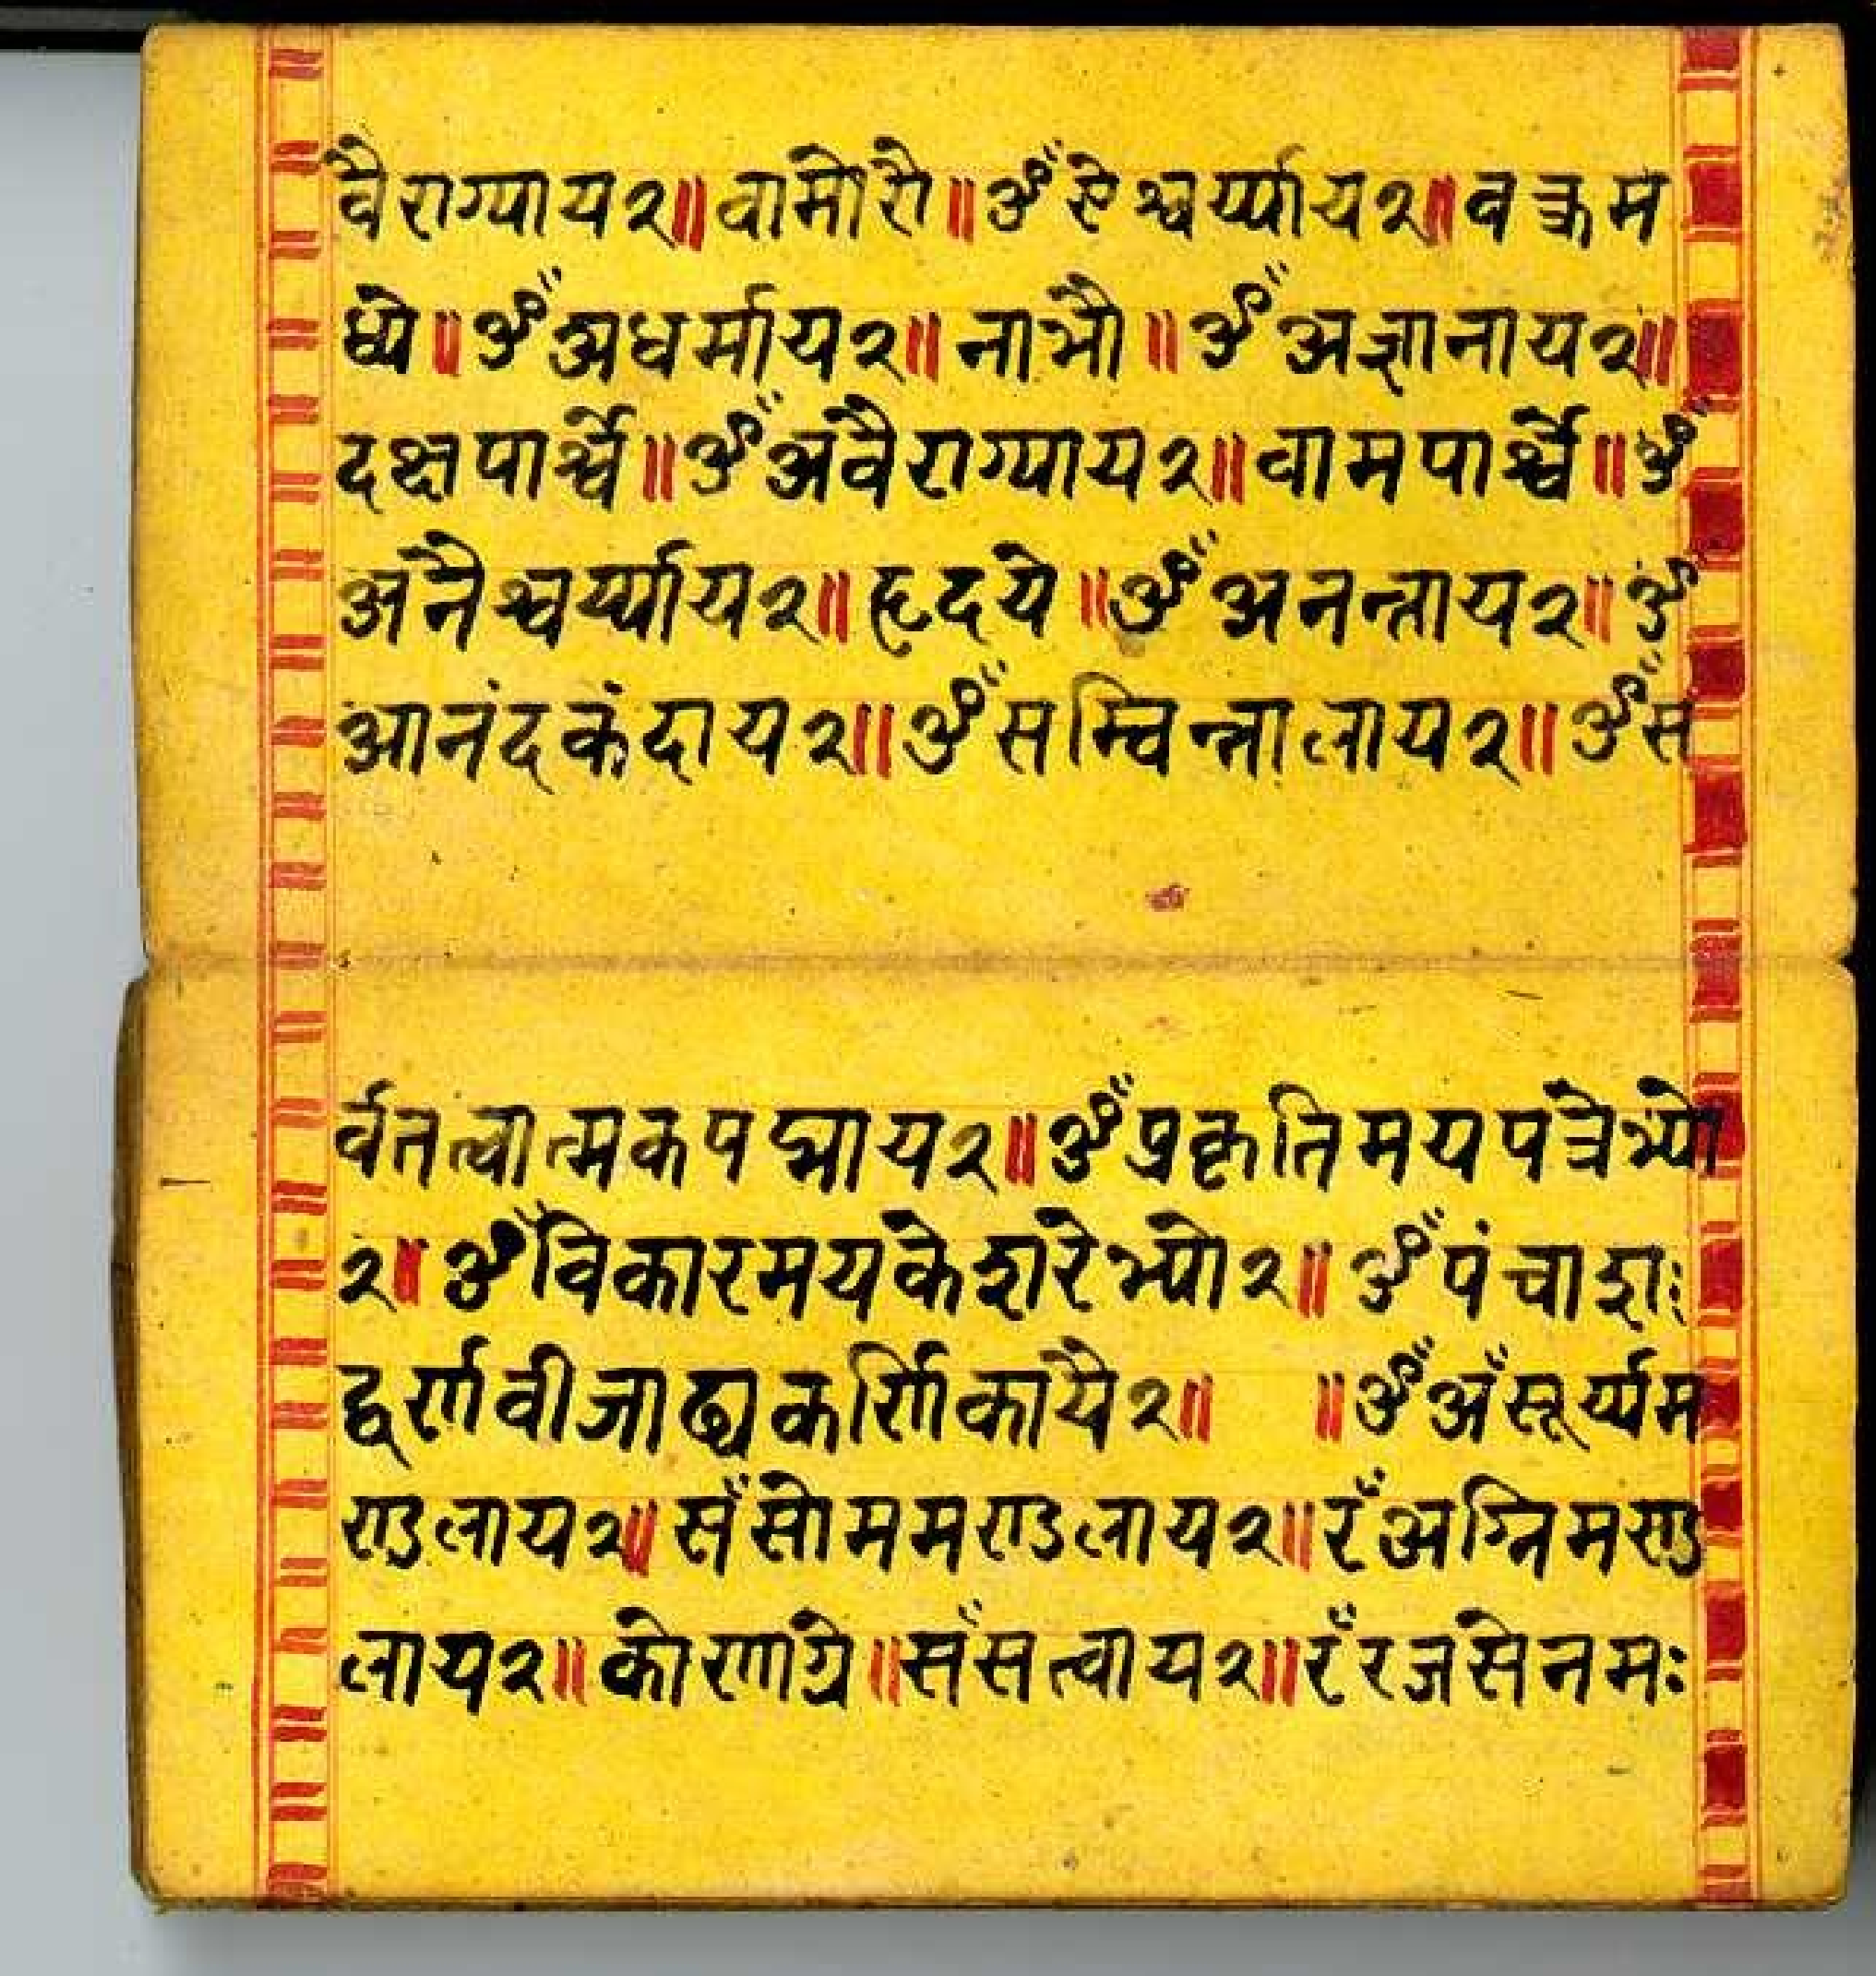 वैराग्याय२॥वामोरौ॥ॐऐश्वर्य्याय२॥वक्त्रम
ध्ये॥ॐअधर्माय२॥नाभौ॥ॐअज्ञानाय२॥
दक्षपार्श्वे॥ॐअवैराग्याय२॥वामपार्श्वे॥ॐ
अनैश्वर्य्याय२॥हृदये॥ॐअनन्ताय२॥ॐ
आनंदकंदाय२॥ॐसम्विन्नालाय२॥ॐस
र्वतत्वात्मकपद्माय२॥ॐप्रकृतिमयपत्रेभ्यो
२॥ॐविकारमयकेशरेभ्यो२॥ॐपंचाशः
द्वर्णवीजाढ्यकर्णिकायै२॥ ॥ॐअँसूर्य्यम
ण्डलाय२॥सँसोममण्डलाय२॥रँअग्निमण्ड
लाय२॥कोणाग्रे॥सँसत्वाय२॥रँरजसेनमः